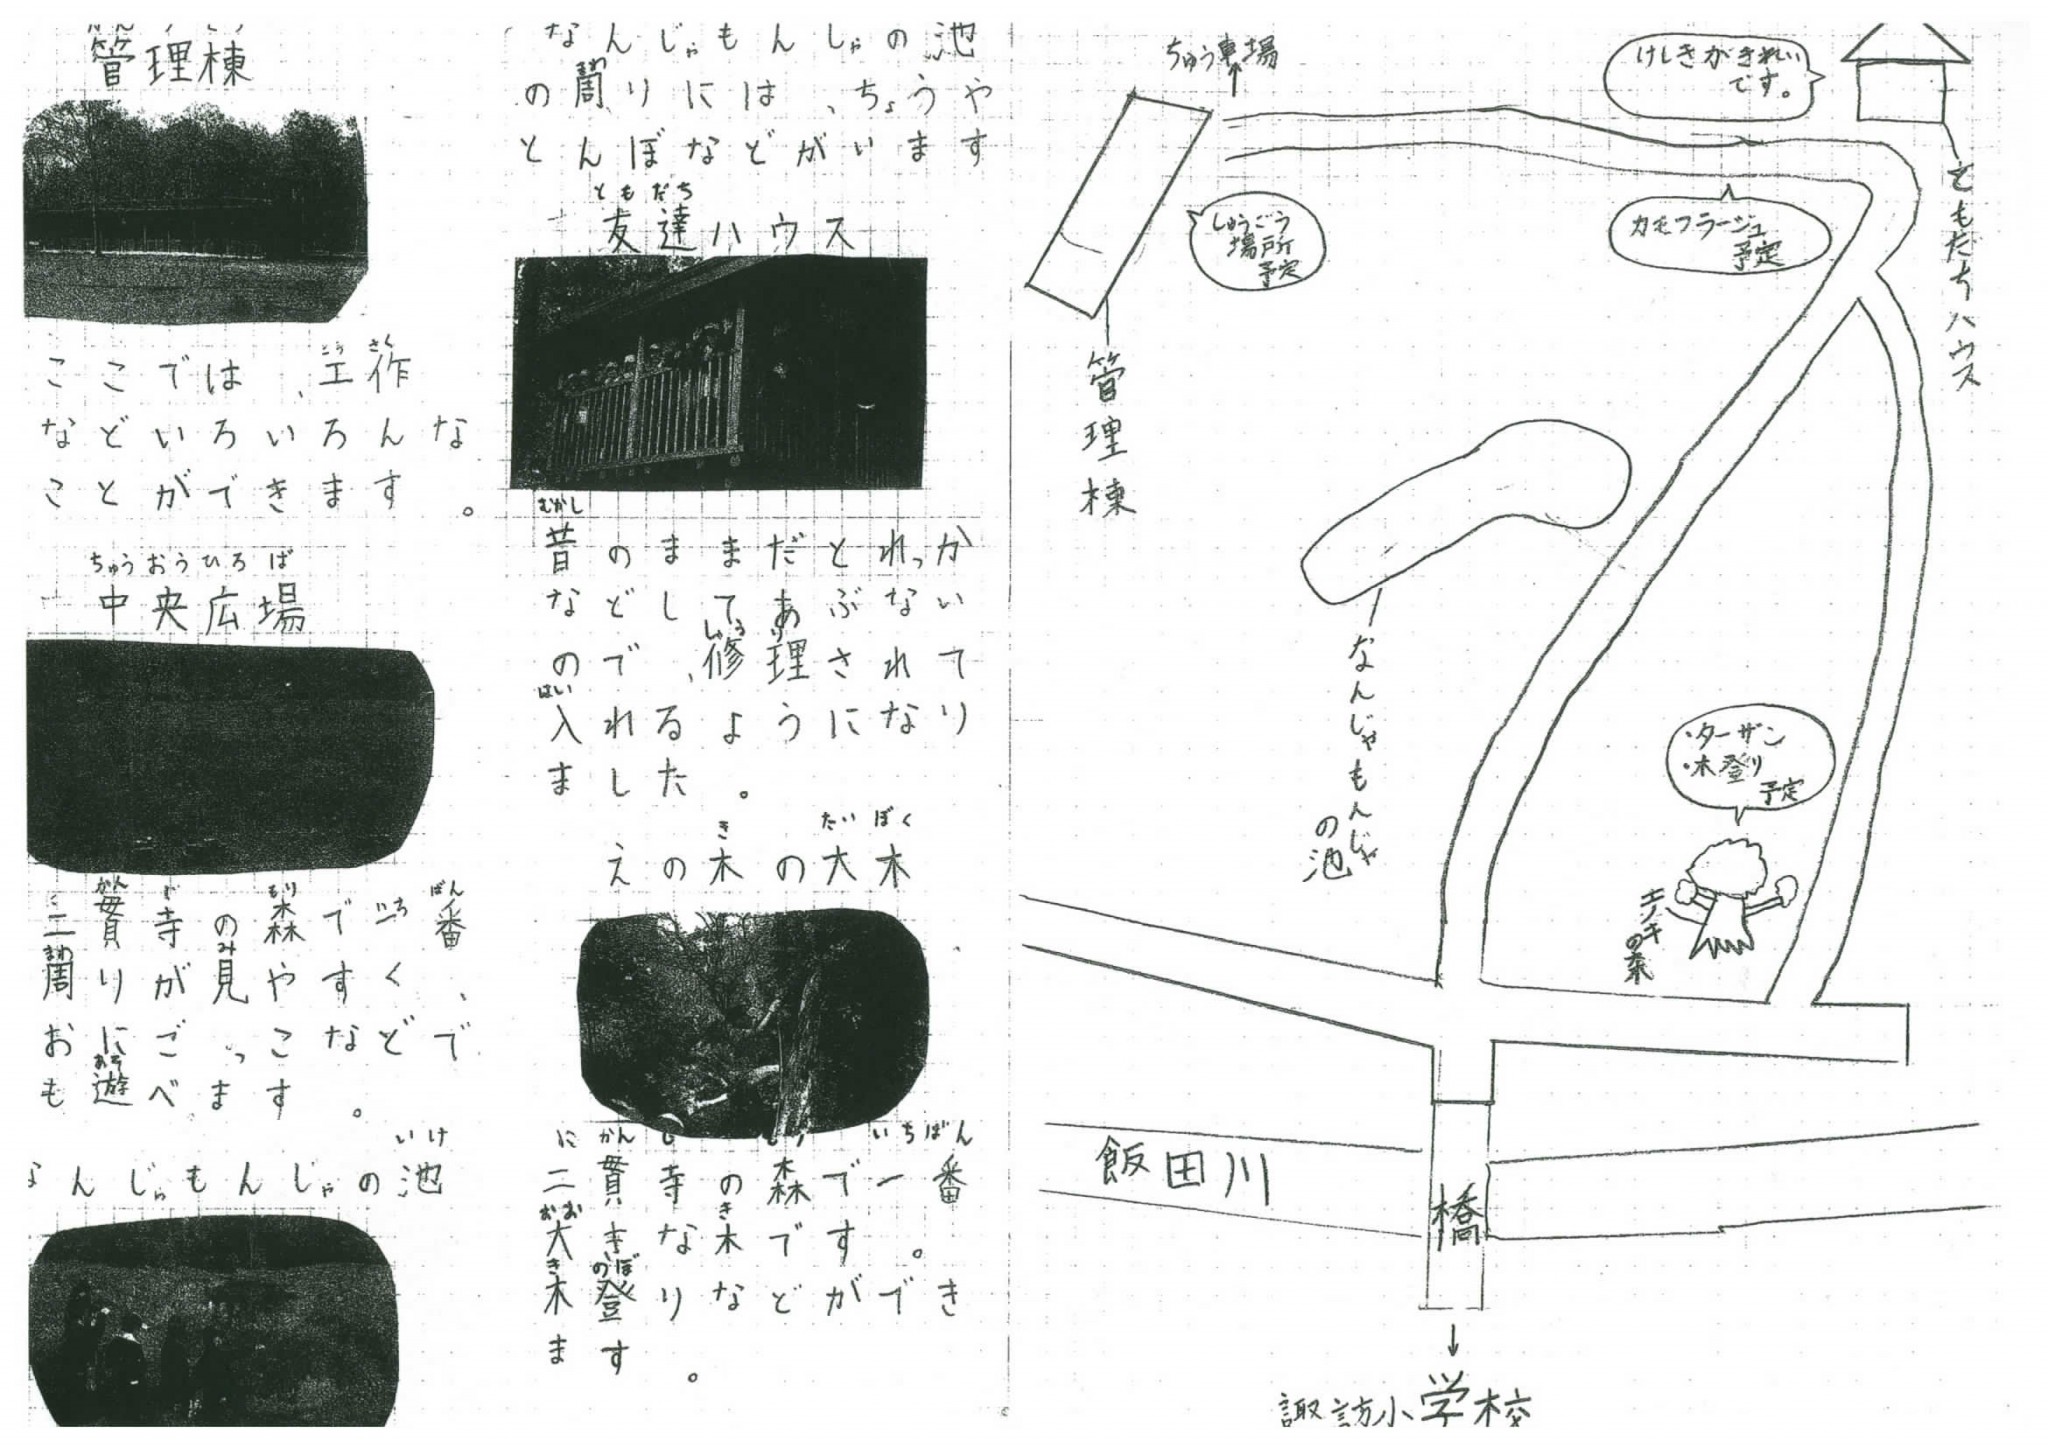 管理棟
ここでは、工作
などいろいろんな
ことができます。
ちゅうおうひろば
中央広場
二貫寺の森で一番
周りが見やすく、
おにごっこなどで
も遊べます。
いけ
なんじゃもんじゃの池
なんじゃもんじゃの池
の周りには、ちょうや
とんぼなどがいます
ともだち
友達ハウス
むかし
昔のままだとれっか
などしてあぶない
ので、修理されて
入れるようになり
ました。
き たいぼく
えの木の大木
に かん じ もり いちばん
二貫寺の森で一番
大きな木です。
木登りなどができ
ます。
ちゅう車場
けしきがきれい
です。
ともだちハウス
しゅうごう
場所
予定
カモフラージュ
予定
管理棟
なんじゃもんじゃ
の池
・ターザン
・木登り
予定
エノキ
飯田川
橋
諏訪小学校